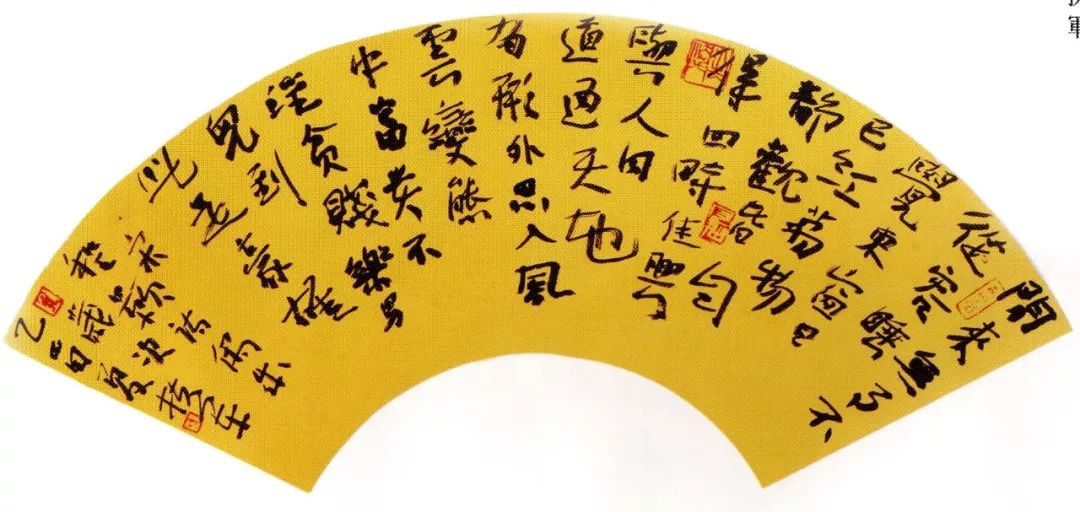 閒來無事不
從容睡
覺東窗日
已紅萬物
靜觀皆自
得四時佳興
與人同
道通天地
有形外思入風
雲變態
中富貴不
淫貧賤樂男
兒到
此是豪雄
宋顥詩偶成
程歲次
乙酉夏
軍